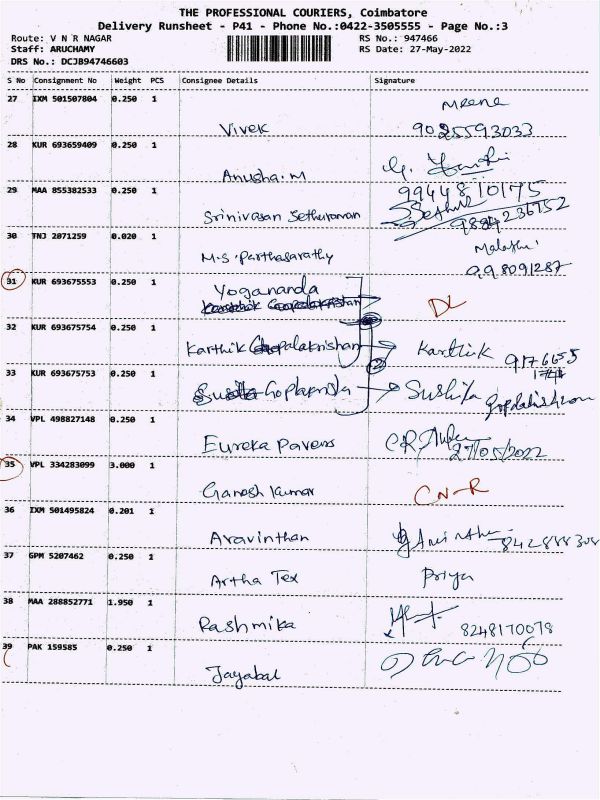 THE PROFESSIONAL COURIERS, Coimbatore
Delivery Runsheet - P41 - Phone No.:0422-3505555 - Page No.:3
Route: V N R NAGAR RS No.: 947466
Staff: ARUCHAMY RS Date: 27-May-2022
DRS No.: DCJB94746603
S No Consignment No Weight PCS Consignee Details Signature
27 IXM 501507804 0.250 1 Meena
Vivek 9025593033
28 KUR 693659409 0.250 1
Anusha.M
29 MAA 855382533 0.250 1 9944810175
Srinivasan Sethuraman Sethu 9884236752
30 TNJ 2071259 0.020 1 Malathi
M.S. Parthasarathy 998091287
31 KUR 693675553 0.250 1 Yogananda
DL
32 KUR 693675754 0.250 1
Karthik Goopalakrishan Karthik 9176655
33 KUR 693675753 0.250 1
Goplakrisda Sushila
34 VPL 498827148 0.250 1
Eureka Pavers 27/05/2022
35 VPL 334283099 3.000 1
Ganesh Kumar CN-R
36 IXM 501495824 0.201 1
Aravinthan
37 GPM 5207462 0.250 1
Artha Tex Priya
38 MAA 288852771 1.950 1
Rashmika 8248170078
39 PAK 159585 0.250 1
Jayabal